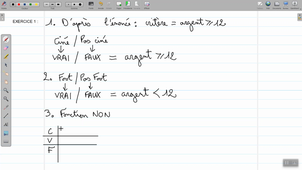 EXERCICE 1 :
1. D'après l'énoncé : critère = argent ⩾ 12
Ciné / Pas ciné
VRAI / FAUX = argent ⩾ 12
2. Foot / Pas Foot
VRAI / FAUX = argent < 12
3. Fonction NON
C +
V
F